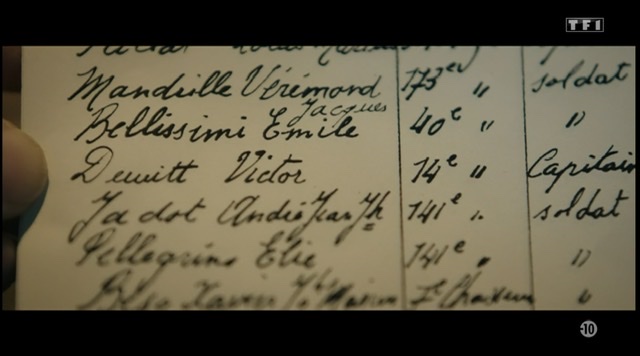 TF1
Mandrille Vérémond 173er " soldat
Jacques
Bellissimi Emile 40e " "
Dewitt Victor 14e " Capitain
Jadot André Jean Jh 141e " soldat
Pellegrino Elie 141e " "
"
-10